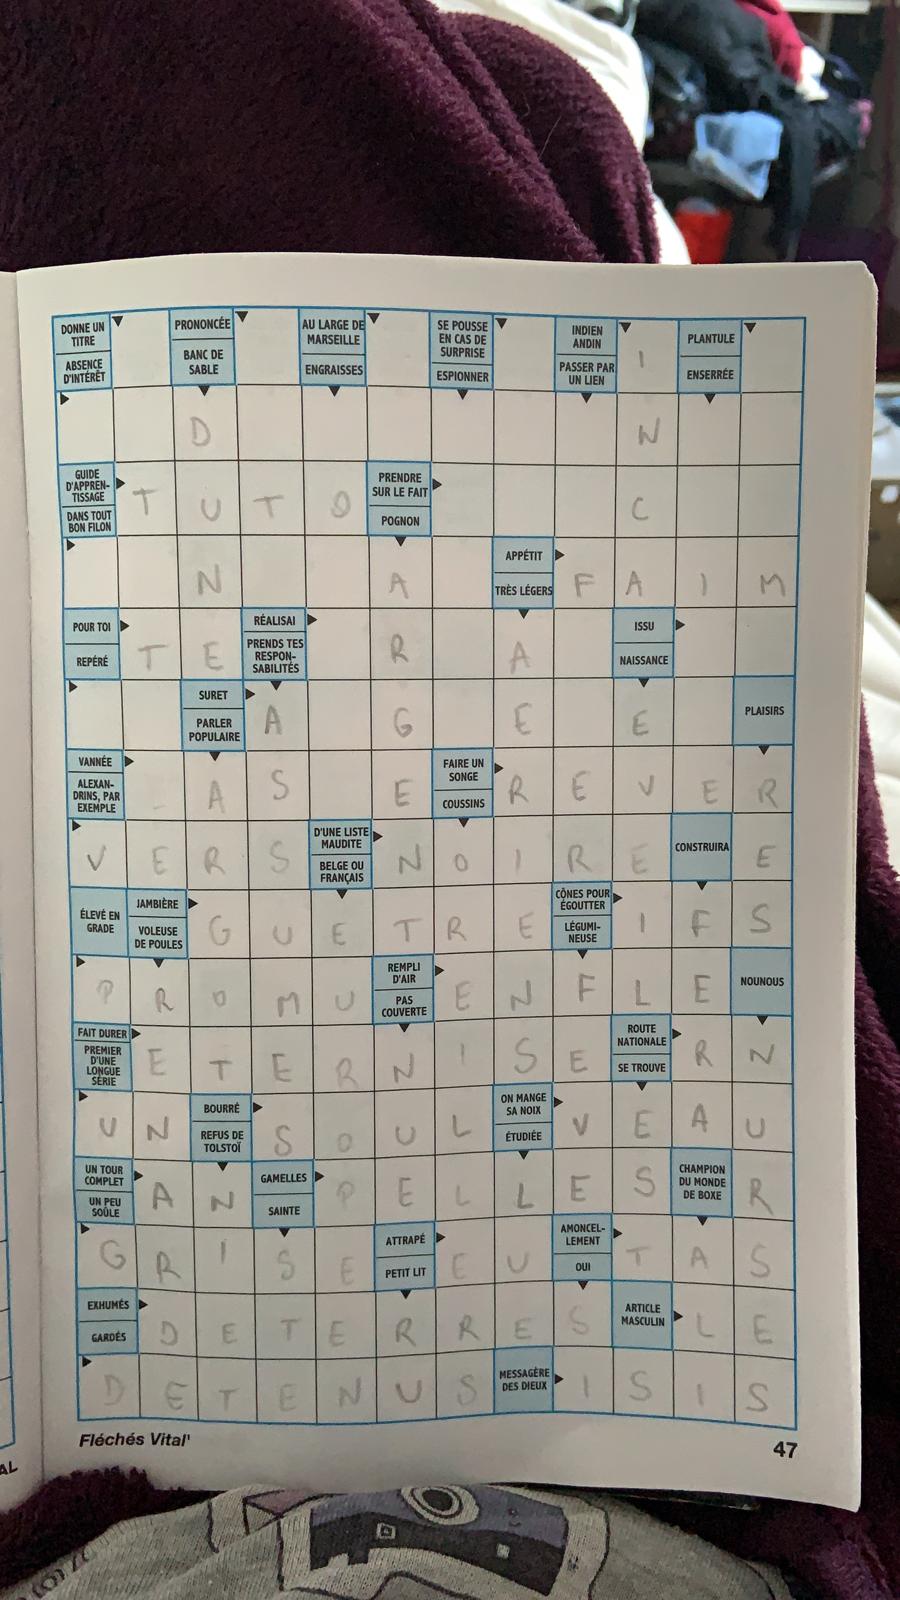 DONNE UN TITRE
ABSENCE D'INTÉRÊT
PRONONCÉE
BANC DE SABLE
AU LARGE DE MARSEILLE
ENGRAISSES
SE POUSSE EN CAS DE SURPRISE
ESPIONNER
INDIEN ANDIN
PASSER PAR UN LIEN
I
PLANTULE
ENSERRÉE
D N
GUIDE D'APPREN-TISSAGE
DANS TOUT BON FILON
T U T O
PRENDRE SUR LE FAIT
POGNON
C
N A
APPÉTIT
TRÈS LÉGERS
F A I M
POUR TOI
REPÉRÉ
T E
RÉALISAI
PRENDS TES RESPON-SABILITÉS
R A
ISSU
NAISSANCE
SURET
PARLER POPULAIRE
A G E E
PLAISIRS
VANNÉE
ALEXAN-DRINS, PAR EXEMPLE
A S E
FAIRE UN SONGE
COUSSINS
R E V E R
V E R S
D'UNE LISTE MAUDITE
BELGE OU FRANÇAIS
N O I R E
CONSTRUIRA
E
ÉLEVÉ EN GRADE
JAMBIÈRE
VOLEUSE DE POULES
G U E T R E
CÔNES POUR ÉGOUTTER
LÉGUMI-NEUSE
I F S
P R O M U
REMPLI D'AIR
PAS COUVERTE
E N F L E
NOUNOUS
FAIT DURER
PREMIER D'UNE LONGUE SÉRIE
E T E R N I S E
ROUTE NATIONALE
SE TROUVE
R N
U N
BOURRÉ
REFUS DE TOLSTOÏ
S O U L
ON MANGE SA NOIX
ÉTUDIÉE
V E A U
UN TOUR COMPLET
UN PEU SOÛLE
A N
GAMELLES
SAINTE
P E L L E S
CHAMPION DU MONDE DE BOXE
R
G R I S E
ATTRAPÉ
PETIT LIT
E U
AMONCEL-LEMENT
OUI
T A S
EXHUMÉS
GARDÉS
D E T E R R E S
ARTICLE MASCULIN
L E
D E T E N U S
MESSAGÈRE DES DIEUX
I S I S
Fléchés Vital'
47
AL